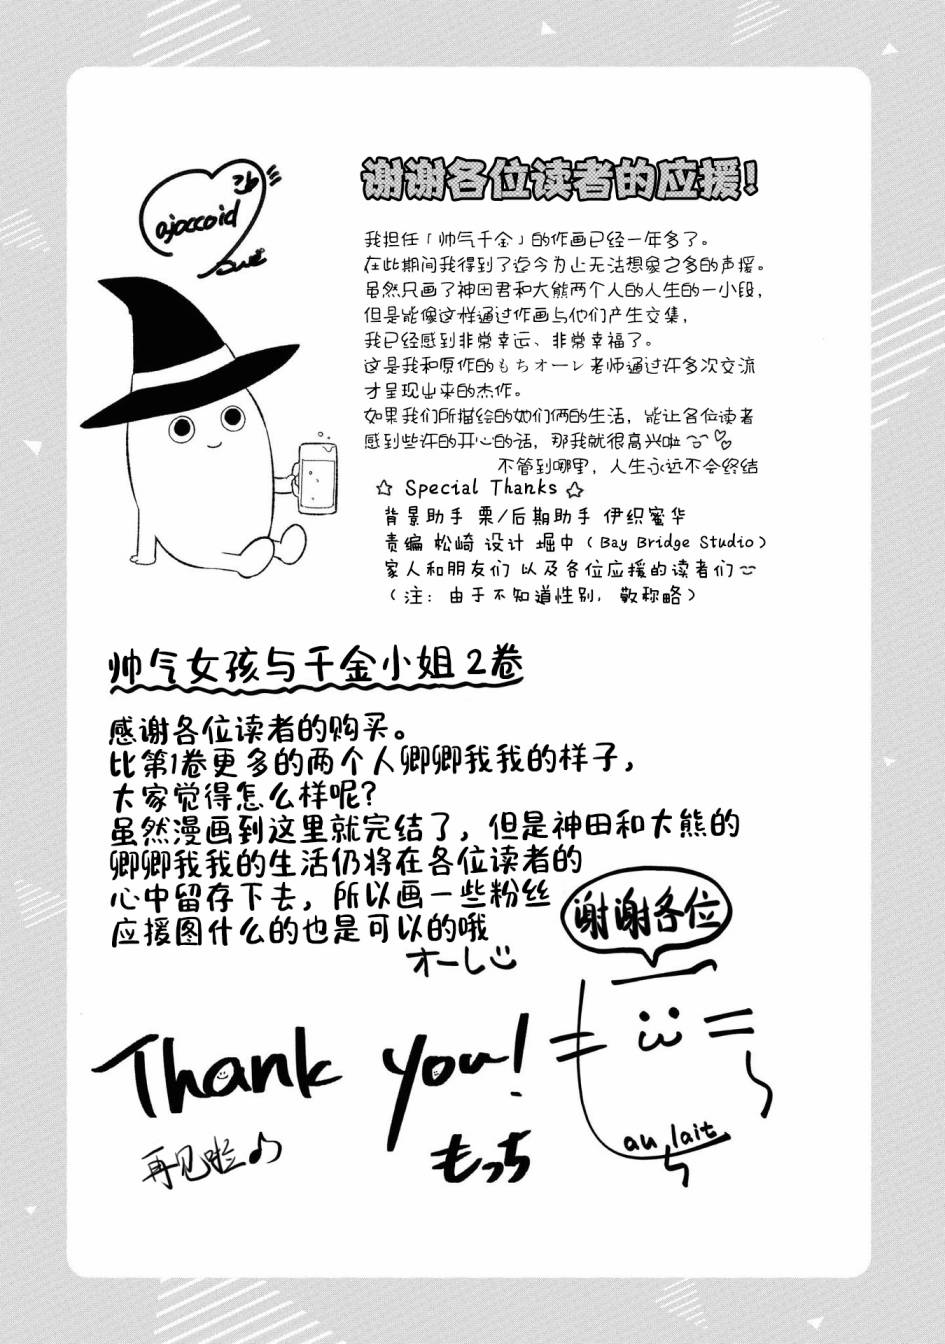 ajaccoid
谢谢各位读者的应援！
我担任「帅气千金」的作画已经一年多了。
在此期间我得到了迄今为止无法想象之多的声援。
虽然只画了神田君和大熊两个人的人生的一小段，
但是能像这样通过作画与他们产生交集，
我已经感到非常幸运、非常幸福了。
这是我和原作的もちオーレ老师通过许多次交流
才呈现出来的杰作。
如果我们所描绘的她们俩的生活，能让各位读者
感到些许的开心的话，那我就很高兴啦
不管到哪里，人生永远不会终结
☆ Special Thanks ☆
背景助手 栗/后期助手 伊织蜜华
责编 松崎 设计 堀中（Bay Bridge Studio）
家人和朋友们 以及各位应援的读者们
（注：由于不知道性别，敬称略）
帅气女孩与千金小姐2卷
感谢各位读者的购买。
比第1卷更多的两个人卿卿我我的样子，
大家觉得怎么样呢？
虽然漫画到这里就完结了，但是神田和大熊的
卿卿我我的生活仍将在各位读者的
心中留存下去，所以画一些粉丝
应援图什么的也是可以的哦
オーレ
谢谢各位
Thank you!
再见啦♪
もっち
au lait